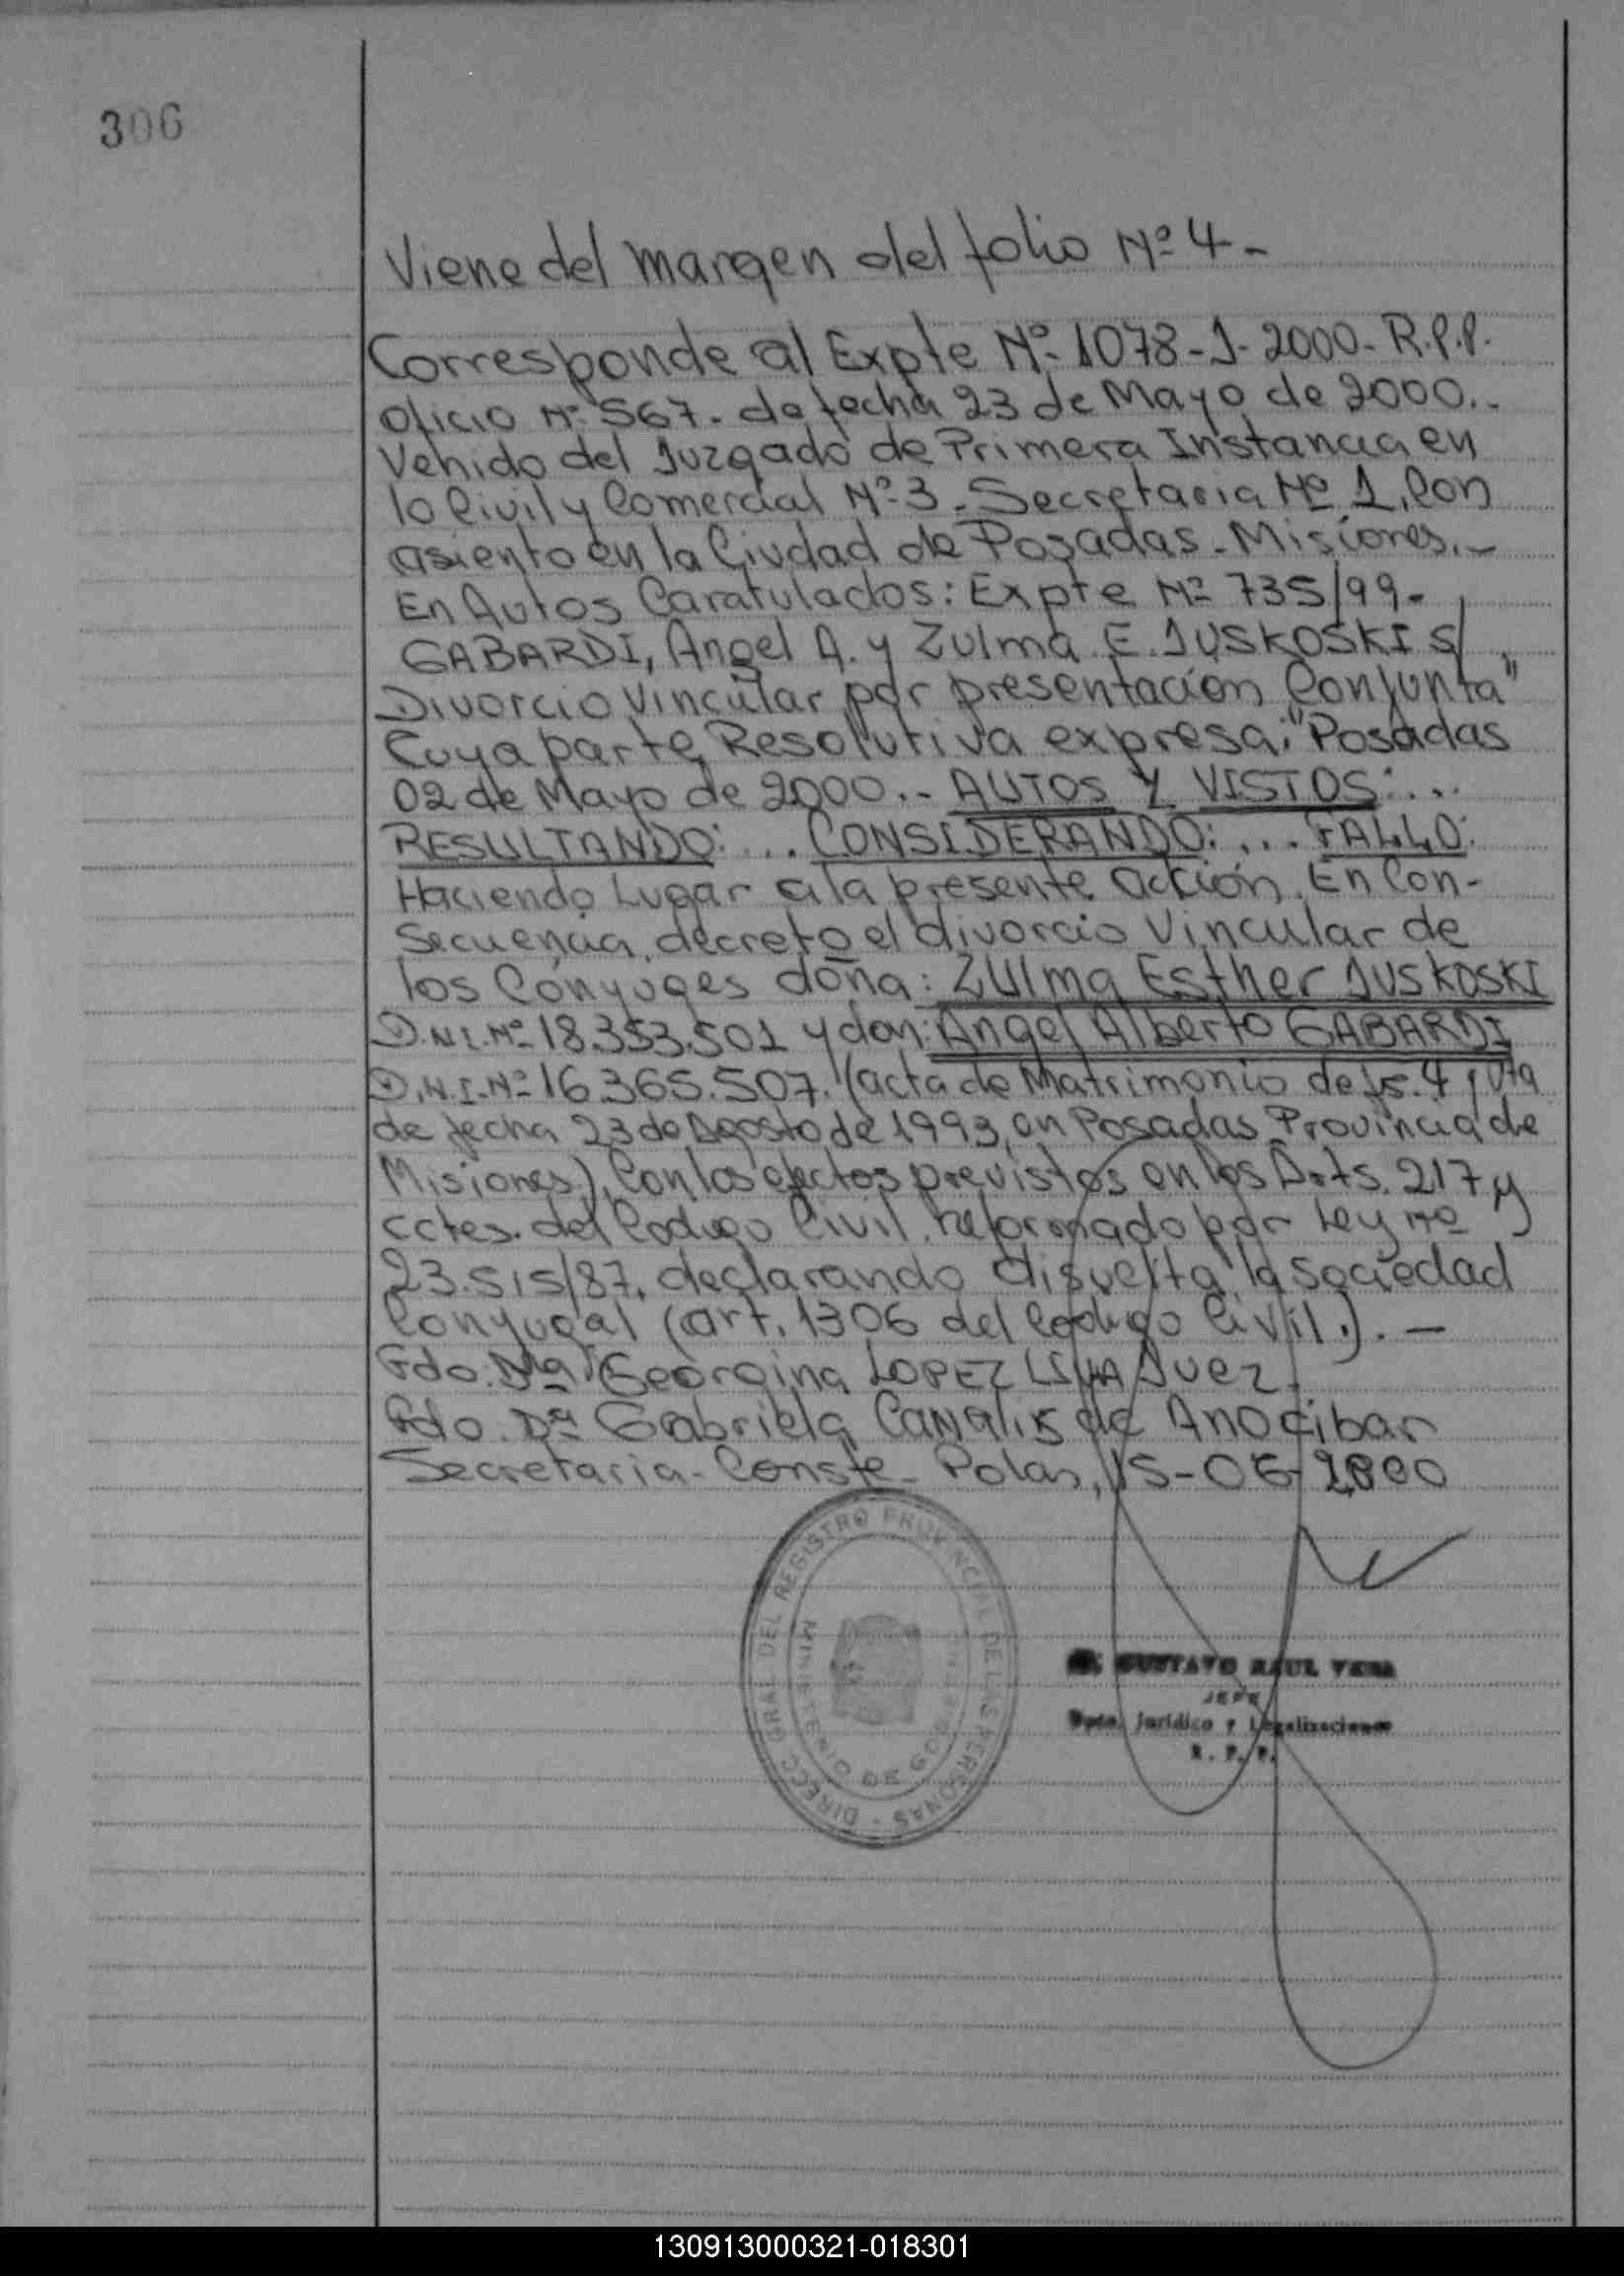 306
Viene del margen del folio Nº 4-
Corresponde al Expte Nº-1078-J-2000-R.P.P.
Oficio Nº 567.- de fecha 23 de Mayo de 2000.-
Venido del Juzgado de Primera Instancia en
lo Civil y Comercial Nº-3-Secretaria Nº 1, Con
asiento en la Ciudad de Posadas-Misiones.-
En Autos Caratulados: Expte Nº 735/99-
GABARDI, Angel A. y Zulma. E. JUSKOSKI S/
Divorcio Vincular por presentación Conjunta"
Cuya parte Resolutiva expresa: "Posadas
02 de Mayo de 2000.- AUTOS Y VISTOS:...
RESULTANDO:... CONSIDERANDO:... FALLO:
Haciendo Lugar a la presente acción. En Con-
Secuencia, decreto el divorcio Vincular de
los Cónyuges doña: ZUlma Esther JUSKOSKI
D.N.I.Nº-18.353.501 y don: Angel Alberto GABARDI
D.N.I.Nº-16.365.507. (acta de Matrimonio de fs. 4 y vta
de fecha 23 de Agosto de 1993, en Posadas Provincia de
Misiones), Con los efectos previstos en los Arts. 217 y
cctes. del Codigo Civil, reformado por Ley Nº
23.515/87, declarando disuelta la Sociedad
Conyugal (art. 1306 del Codigo Civil.).-
Fdo. Mª Georgina LOPEZ LIHA Juez
Fdo. Dª Gabriela Canalis de Anocibar
Secretaria-Conste- Pdas, 15-06-2000
DIRECC GRAL DEL REGISTRO PROVINCIAL DE LAS PERSONAS -
MINISTERIO DE GOBIERNO
GUSTAVO RAUL VERA
JEFE
Dpto. Jurídico y Legalizaciones
R. P. P.
130913000321-018301